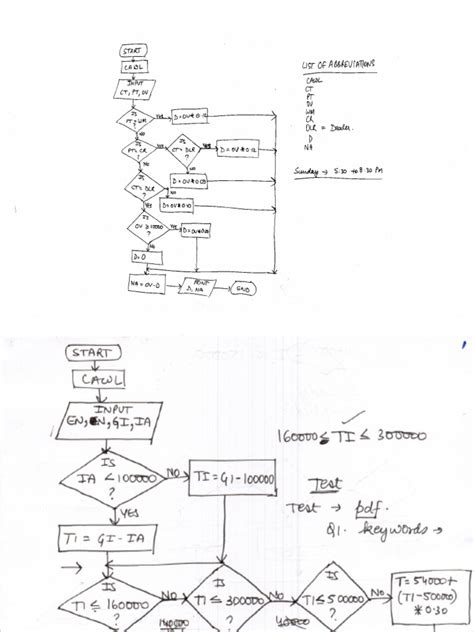 START
CAWL
INPUT
CT, PT, OV
IS
PT = WM
?
YES
NO
IS
PT = CR
?
IS
CT = DLR
?
YES
NO
IS
CT = DLR
?
NO
YES
IS
OV ≥ 10000
?
YES
NO
D = 0
NA = OV - D
PRINT
D, NA
END
LIST OF ABBREVIATIONS
CAWL
CT
PT
OV
WM
CR
DLR = Dealer
D
NA
Sunday → 5:30 to 8:30 PM
START
CAWL
INPUT
EN, EN, GI, IA
IS
IA < 100000
?
NO
TI = GI - 100000
YES
TI = GI - IA
160000 ≤ TI ≤ 300000
Test
Test → pdf.
Q1. keywords →
IS
TI ≤ 160000
NO
IS
TI ≤ 300000
NO
IS
TI ≤ 500000
?
NO
T = 54000 +
(TI - 500000)
* 0.30